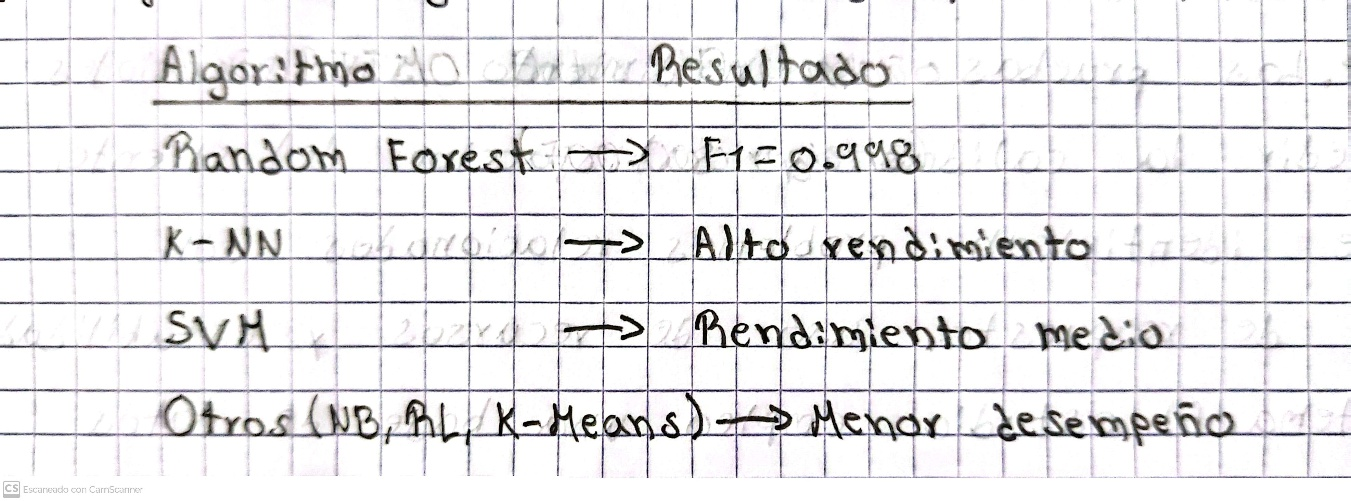 Algoritmo Resultado
Random Forest → F1=0.998
K-NN → Alto rendimiento
SVM → Rendimiento medio
Otros (NB, RL, K-Means) → Menor desempeño
CS Escaneado con CamScanner